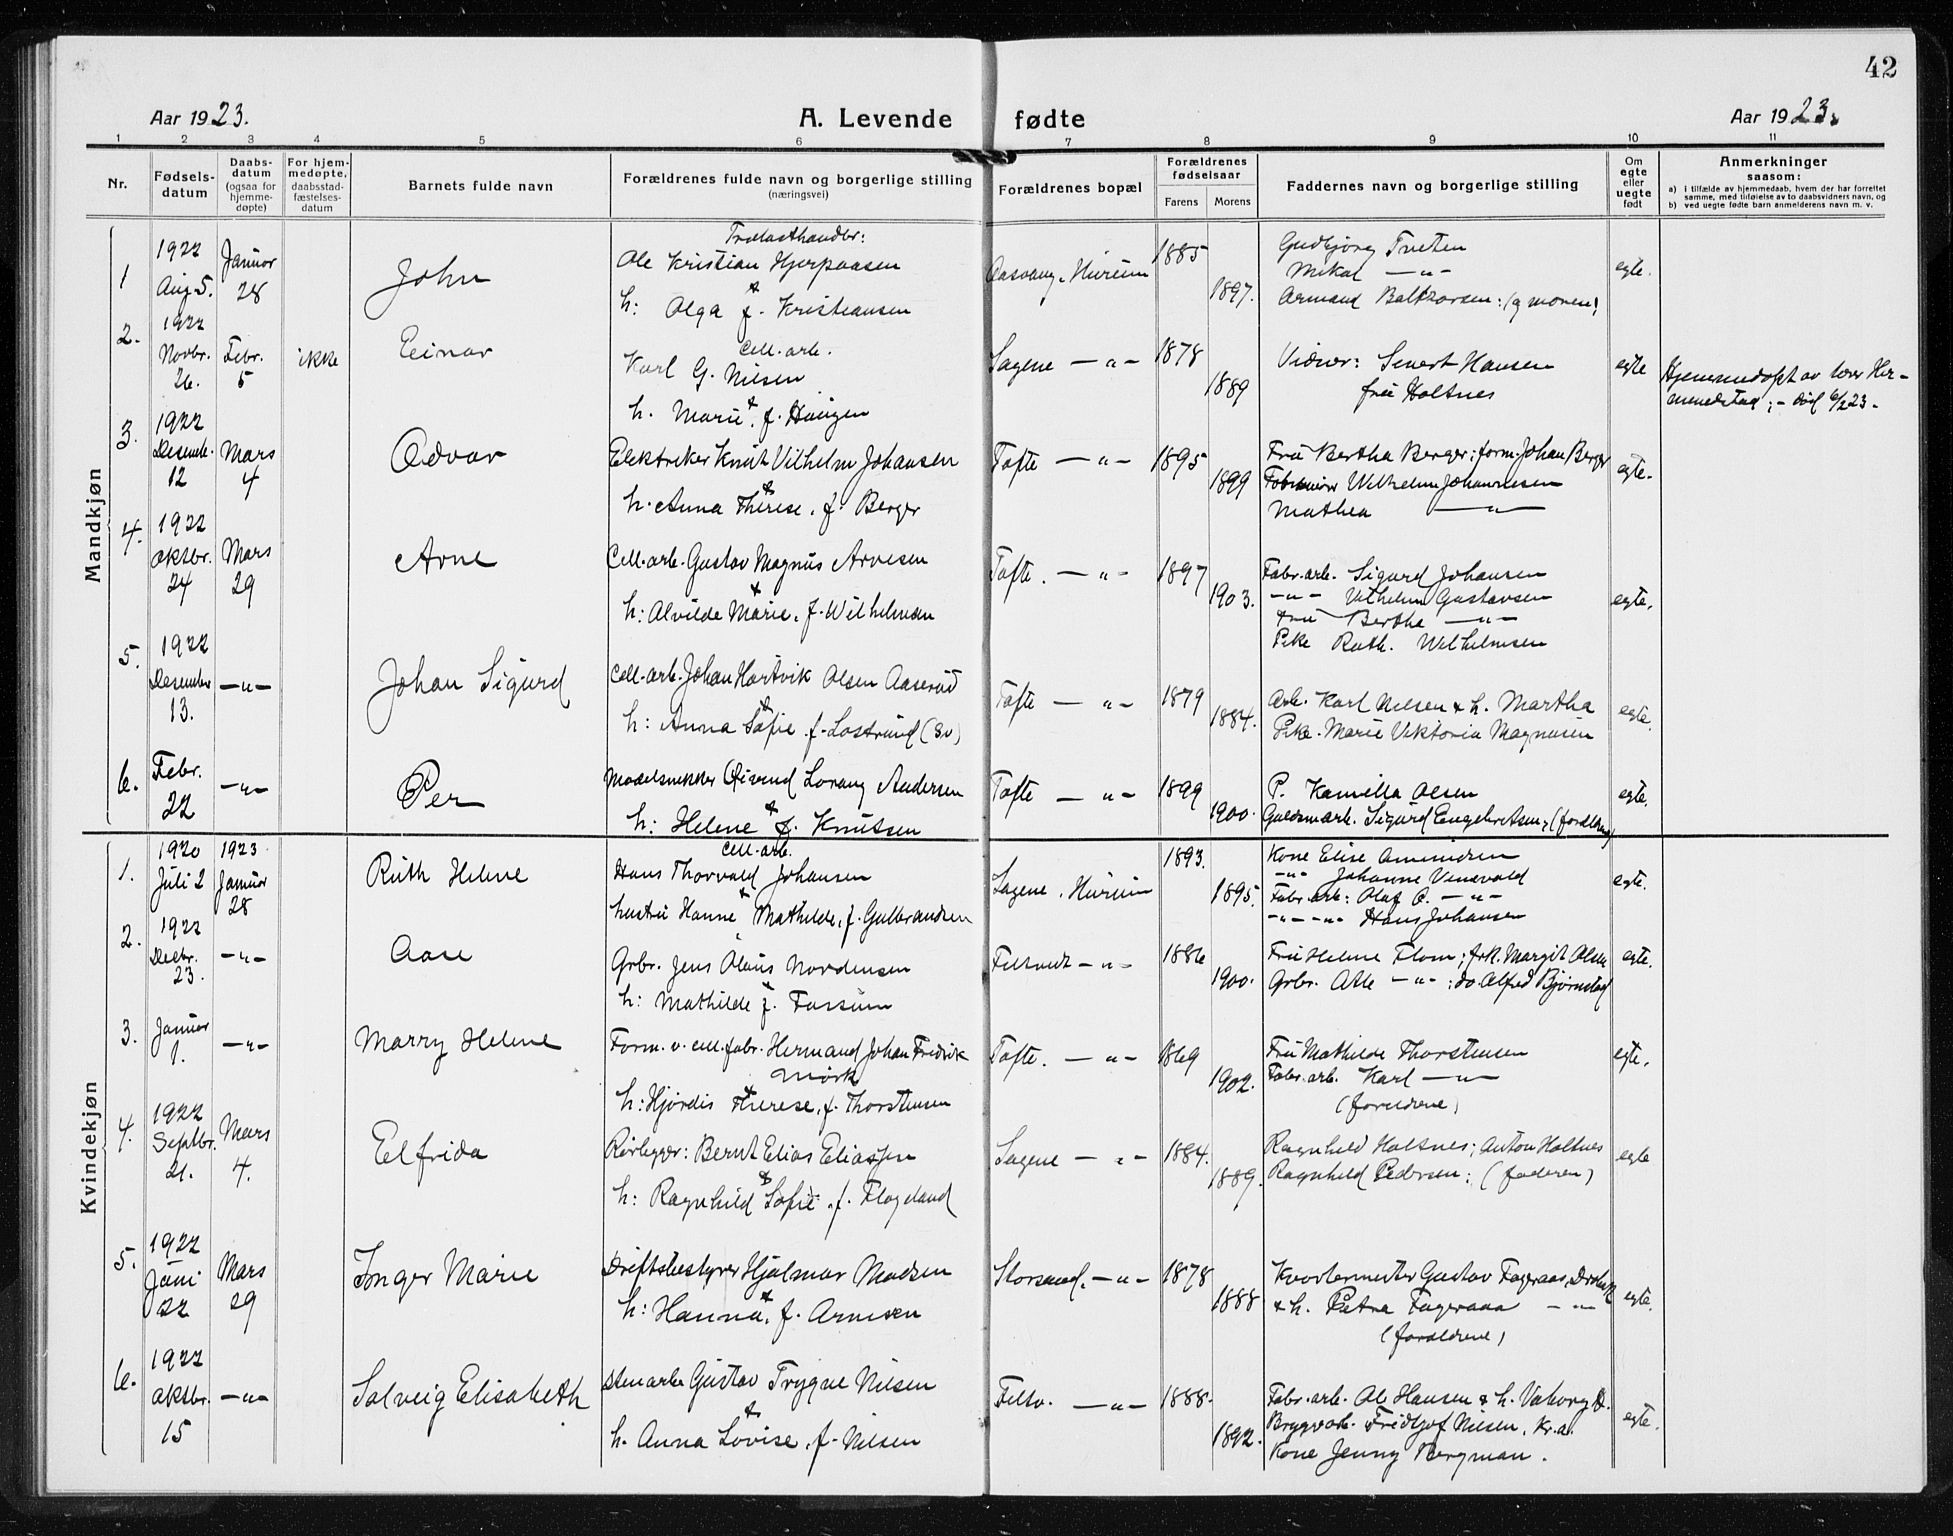 42
Aar 1923.
A. Levende fødte
Aar 1923.
1 2 3 4 5 6 7 8 9 10 11
Nr.
Fødsels-
datum
Daabs-
datum
(ogsaa for
hjemme-
døpte)
For hjem-
medøpte,
daabsstad-
fæstelses-
datum
Barnets fulde navn
Forældrenes fulde navn og borgerlige stilling
(næringsvei)
Forældrenes bopæl
Forældrenes
fødselsaar
Farens Morens
Faddernes navn og borgerlige stilling
Om
egte
eller
uegte
født
Anmerkninger
saasom:
a) i tilfælde av hjemmedaab, hvem der har forrettet
samme, med tilføielse av to daabsvidners navn, og
b) ved uegte fødte barn anmelderens navn m. v.
Mandkjøn
1 1922 Aug 5. Januar 28
John
Trælasthandlr:
Ole Kristian Hjerpaasen
h: Olga f. Kristiansen
Aasvang, Hurum 1885 1897.
Gudbjørg Tveten
Mikal —"—
Armand Baltzersen: (g moren)
egte.
2. 1922 Novbr. 26. Febr. 5 ikke
Einar
Cell.arb.
Karl G. Nilsen
h. Marie, f. Haugen
Sagene —"— 1878 1889
Vidner: Severt Hansen
fru Holtnes
egte
Hjemmedøpt av lærer Her-
menedstad; - død 6/2 23.
3. 1922 Desemb. 12 Mars 4
Odvar
Elektriker Knut Vilhelm Johansen
h. Anna Therese, f. Berger
Tofte —"— 1895 1899
Fru Bertha Berger: form. Johan Berger
Wilhelm Johannesen
Mathea —"—
egte.
4. 1922 Oktbr. 24 Mars 29
Arne
Cell.arb. Gustav Magnus Arvesen
h: Alvilde Marie, f. Wilhelmsen
Tofte. —"— 1897 1903.
Fabr.arb. Sigurd Johansen
—"— Vilhelm Gustavsen
fru Bertha —"—
Pike Ruth. Wilhelmsen
egte.
5. 1922 Desember 13. —"—
Johan Sigurd
Cell.arb. Johan Hartvik Olsen Aaserud
h: Anna Sofie, f. Lostrund (Sv)
Tofte —"— 1879 1884.
Arb. Karl Nilsen & h. Martha
Pike. Marie Viktoria Magnusen
egte.
6. Febr. 22 —"—
Per
Modelsnekker Øivend Lorang Andersen
h: Helene f. Knutsen
Tofte —"— 1899 1900.
P. Kamilla Olsen
Guldsmarb. Sigurd Engebretsen,
egte.
Kvindekjøn
1. 1920 Juli 2 1923 Januar 28
Ruth Helene
Cell.arb.
Hans Thorvald Johansen
hustru Hanne Mathilde, f. Gulbrandsen
Sagene, Hurum 1893. 1895.
Kone Elise Amundsen
—"— Johanne Vinsvold
Fabr.arb: Olaf O. —"—
—"—"— Hans Johansen
egte.
2. 1922 Decbr. 23. —"—
Aase
Grbr. Jens Olaus Nordensen
h: Mathilde f. Fossum
Filtvedt —"— 1886 1900.
Fru Helene Flom; frk. Margit Olsen
Grbr. Atle —"—: do. Alfred Bjørnstad
egte.
3. Januar 1. —"—
Marry Helene
Form. v. cell.fabr. Hermand Johan Fredrik
Mørk
h: Hjørdis Therese, f. Thorstensen
Tofte. —"— 1869 1902.
Fru Mathilde Thorstensen
Fabr.arb. Karl —"—
(forældrene)
egte.
4. 1922 Septbr. 21. Mars 4.
Elfrida
Rørlegger: Bernt Elias Eliassen
h: Ragnhild Sofie, f. Flageland
Sagene —"— 1884. 1889.
Ragnhild Holtnes; Anton Holtnes
Ragnhild Pedersen: (faderen)
egte
5. 1922 Juni 22 Mars 29
Inger Marie
Driftsbestyrer Hjalmar Madsen
h: Hanna, f. Arnesen
Storsand. —"— 1878 1888
Kvartermester Gustav Fageraas, Drøbak
& h. Petra Fageraas —"—
(forældrene)
egte.
6. 1922 Oktbr. 15 —"—
Solveig Elisabeth
Stenarb. Gustav Trygve Nilsen
h. Anna Lovise, f. Nilsen
Filtv. —"— 1888. 1892.
Fabr.arb. Ole Hansen & h. Valborg D.
Bryggearb. Fridtjof Nilsen, Kr.a.
Kone Jenny Bergman.
egte.